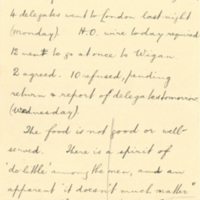 4 delegates went to London last night
(Monday). H.O. wire today required
12 men to go at once to Wigan.
2 agreed. 10 refused, pending
return & report of delegates tomorrow
(Wednesday).
The food is not good or well
served. There is a spirit of
'do little' among the men, and an
apparent 'it doesn't much matter'